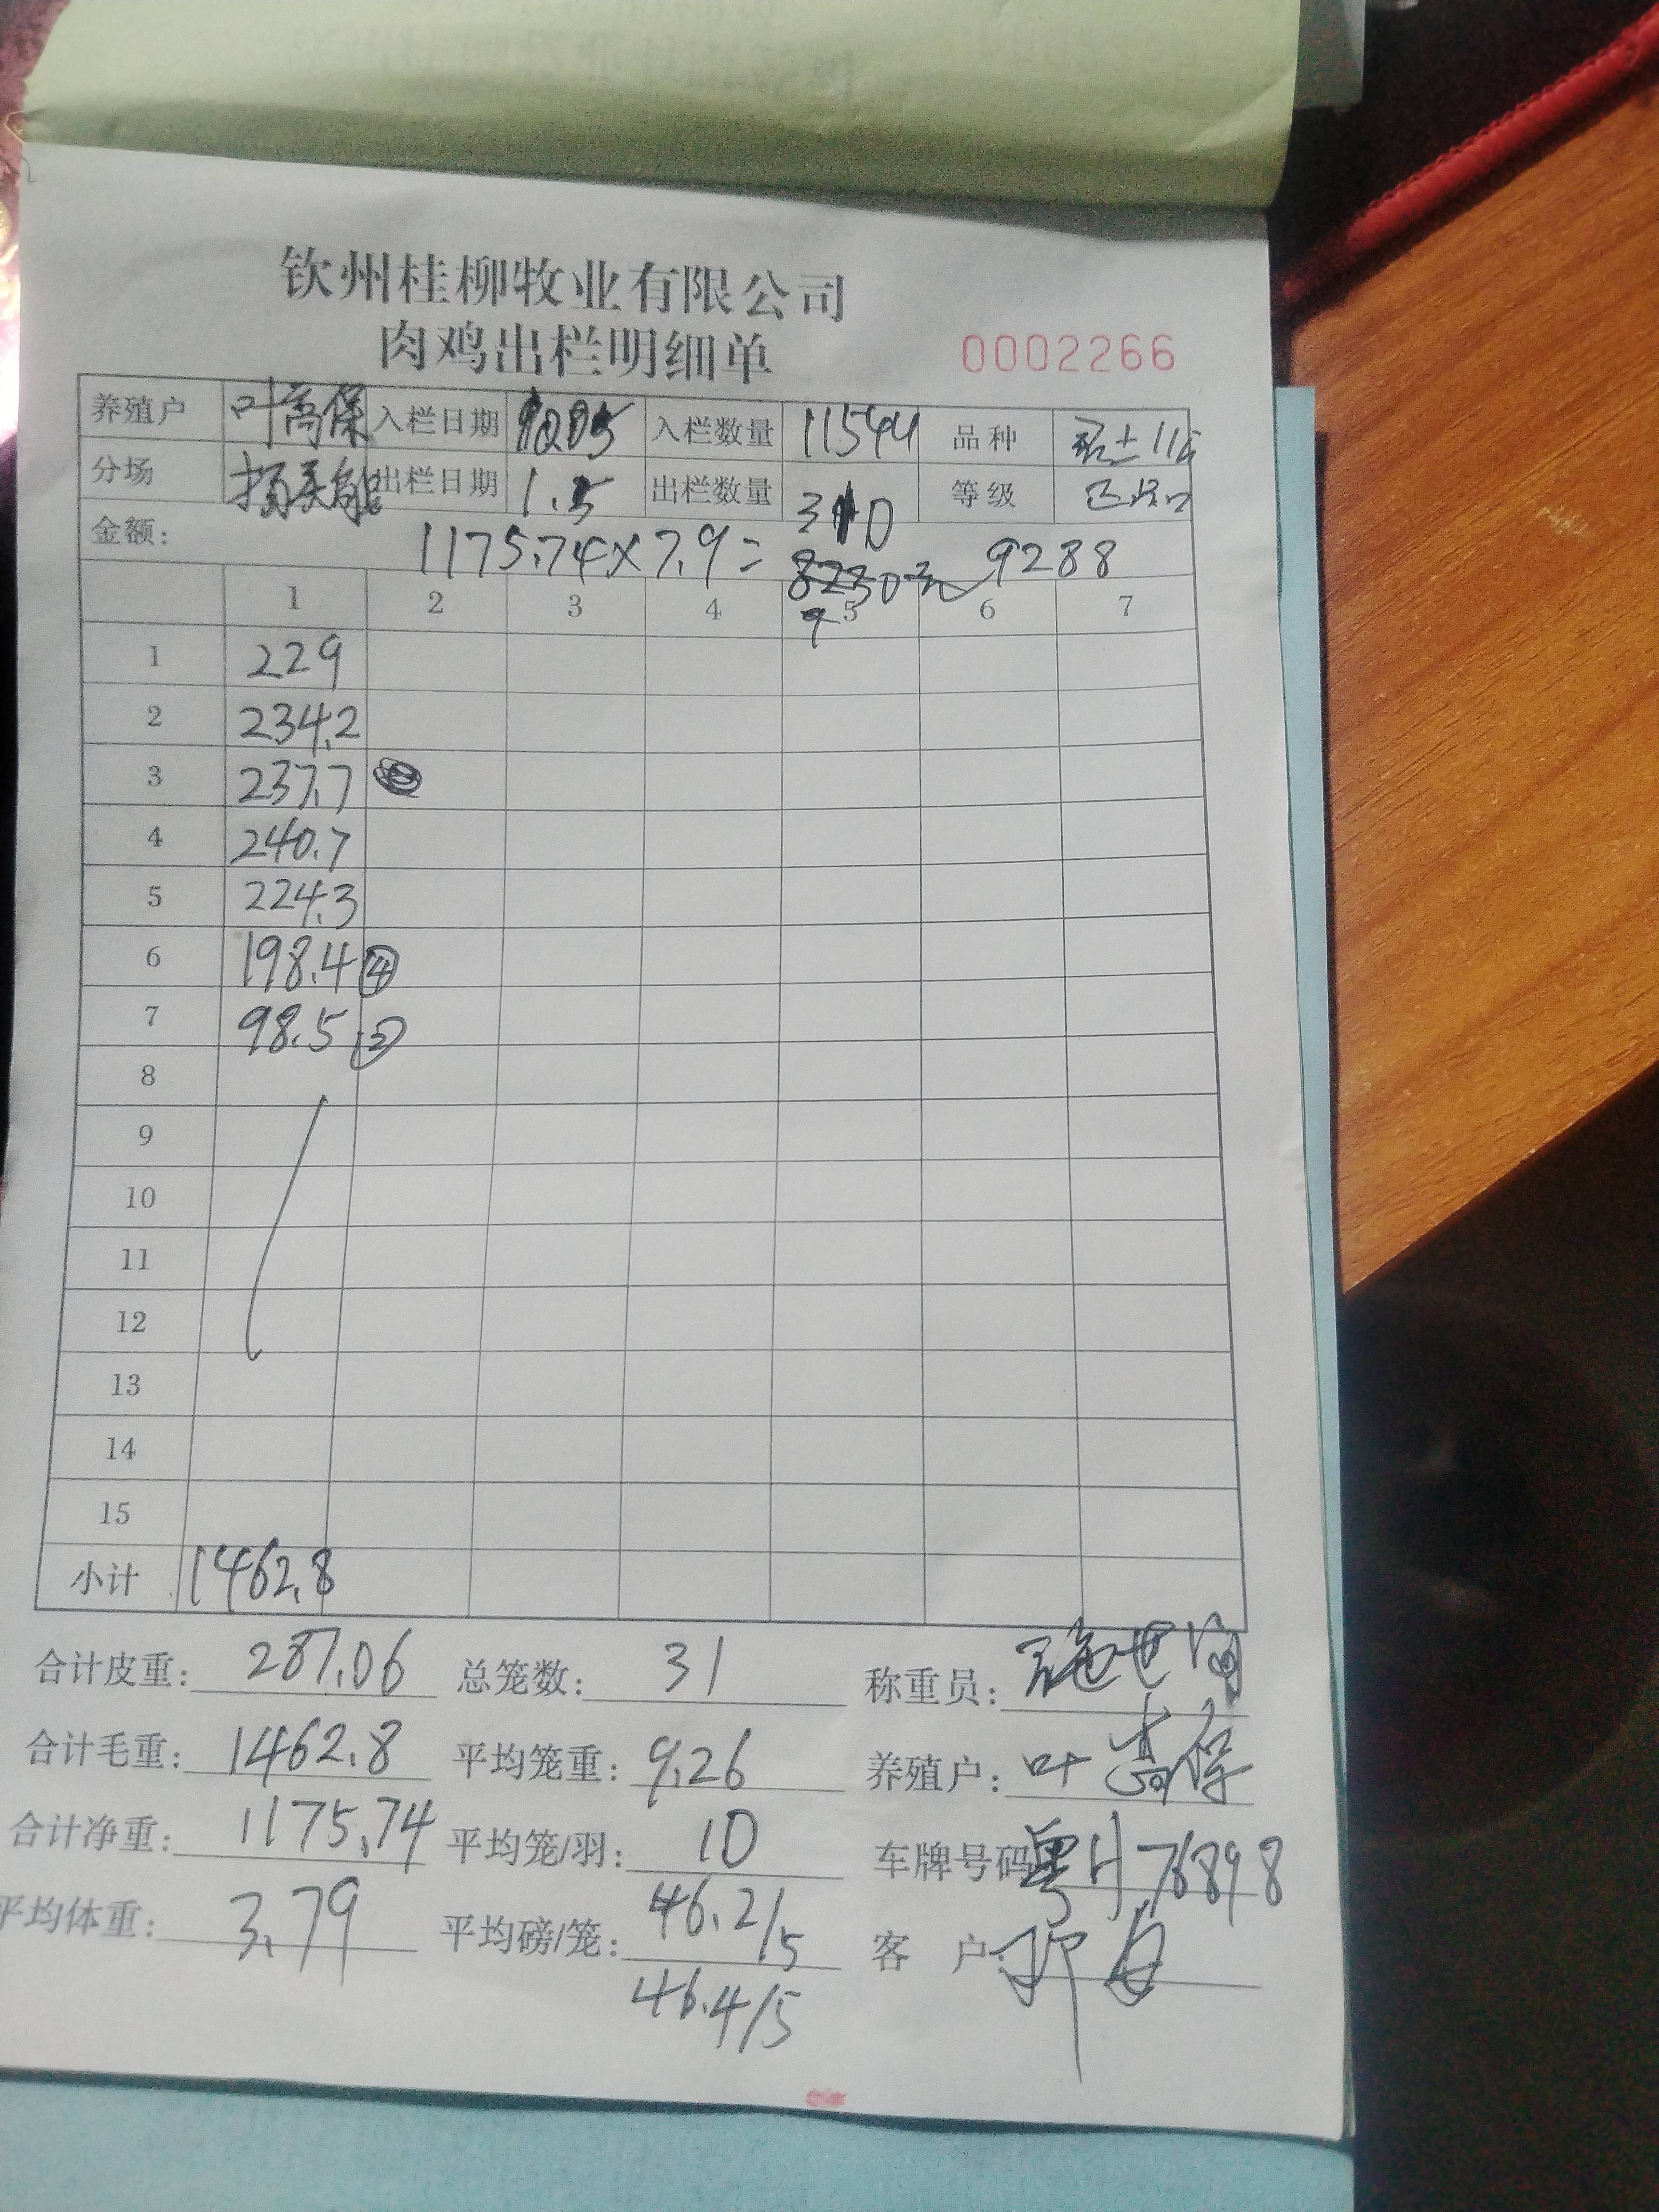 钦州桂柳牧业有限公司
肉鸡出栏明细单 0002266
养殖户 叶高保 入栏日期 入栏数量 11544 品种
分场 出栏日期 1.5 出栏数量 310 等级
金额: 1175.74×7.9= 9288
1 2 3 4 5 6 7
1 229
2 234.2
3 237.7
4 240.7
5 224.3
6 198.4 ④
7 98.5 ②
8
9
10
11
12
13
14
15
小计 1462.8
合计皮重: 287.06 总笼数: 31 称重员:
合计毛重: 1462.8 平均笼重: 9.26 养殖户: 叶高保
合计净重: 1175.74 平均笼/羽: 10 车牌号码 76898
平均体重: 3.79 平均磅/笼: 46.2/5 客 户:
46.4/5